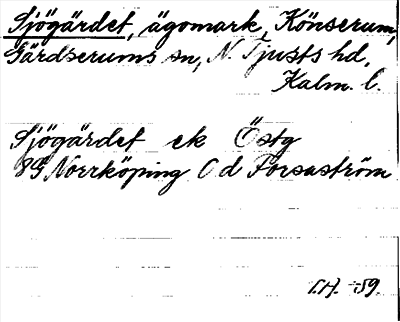 Sjögärdet, ägomark, Könserum,
Gärdserums sn, N. Tjusts hd,
Kalm. l.
Sjögärdet ek Östg
8G Norrköping Od Forsaström
I.H. -59.